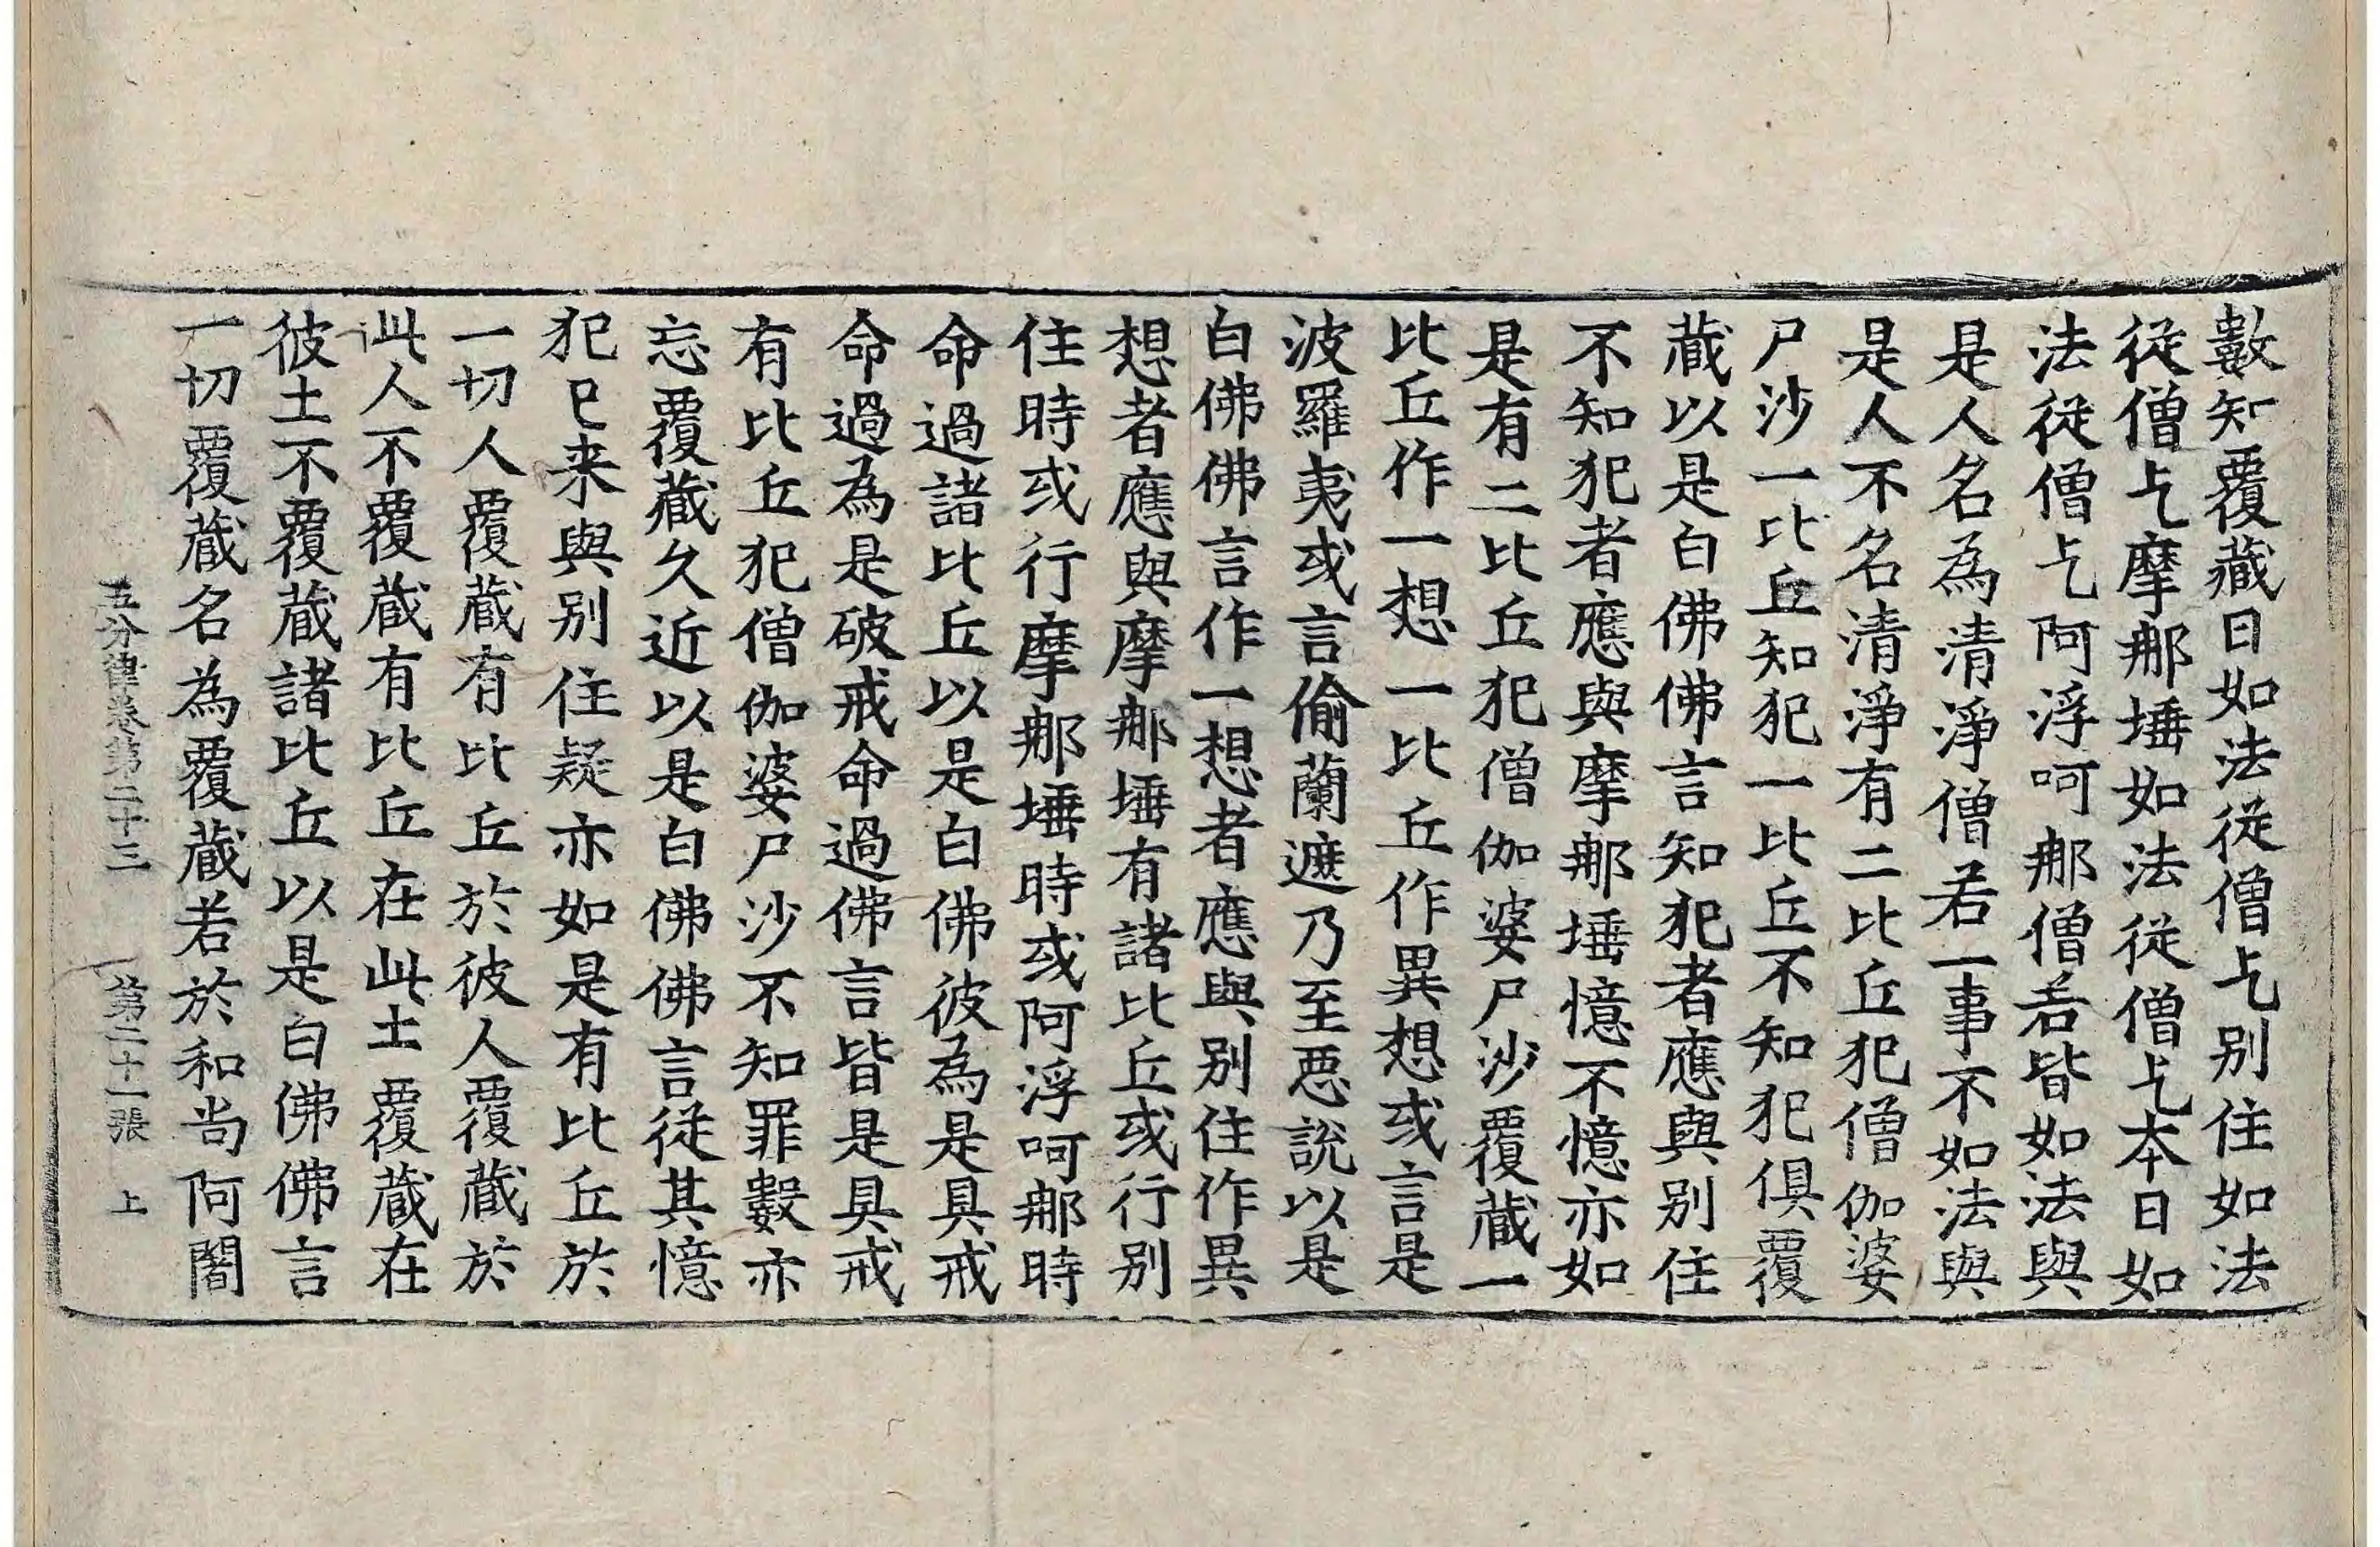 數知覆藏日如法從僧乞別住如法
從僧乞摩那埵如法從僧乞本日如
法從僧乞阿浮呵那僧若皆如法與
是人名為清淨僧若一事不如法與
是人不名清淨有二比丘犯僧伽婆
尸沙一比丘知犯一比丘不知犯俱覆
藏以是白佛佛言知犯者應與別住
不知犯者應與摩那埵憶不憶亦如
是有二比丘犯僧伽婆尸沙覆藏一
比丘作一想一比丘作異想或言是
波羅夷或言偷蘭遮乃至惡說以是
白佛佛言作一想者應與別住作異
想者應與摩那埵有諸比丘或行別
住時或行摩那埵時或阿浮呵那時
命過諸比丘以是白佛彼為是具戒
命過為是破戒命過佛言皆是具戒
有比丘犯僧伽婆尸沙不知罪數亦
忘覆藏久近以是白佛佛言從其憶
犯已来與別住疑亦如是有比丘於
一切人覆藏有比丘於彼人覆藏於
此人不覆藏有比丘在此土覆藏在
彼土不覆藏諸比丘以是白佛佛言
一切覆藏名為覆藏若於和尚阿闍
五分律卷第二十三 第二十一張 上